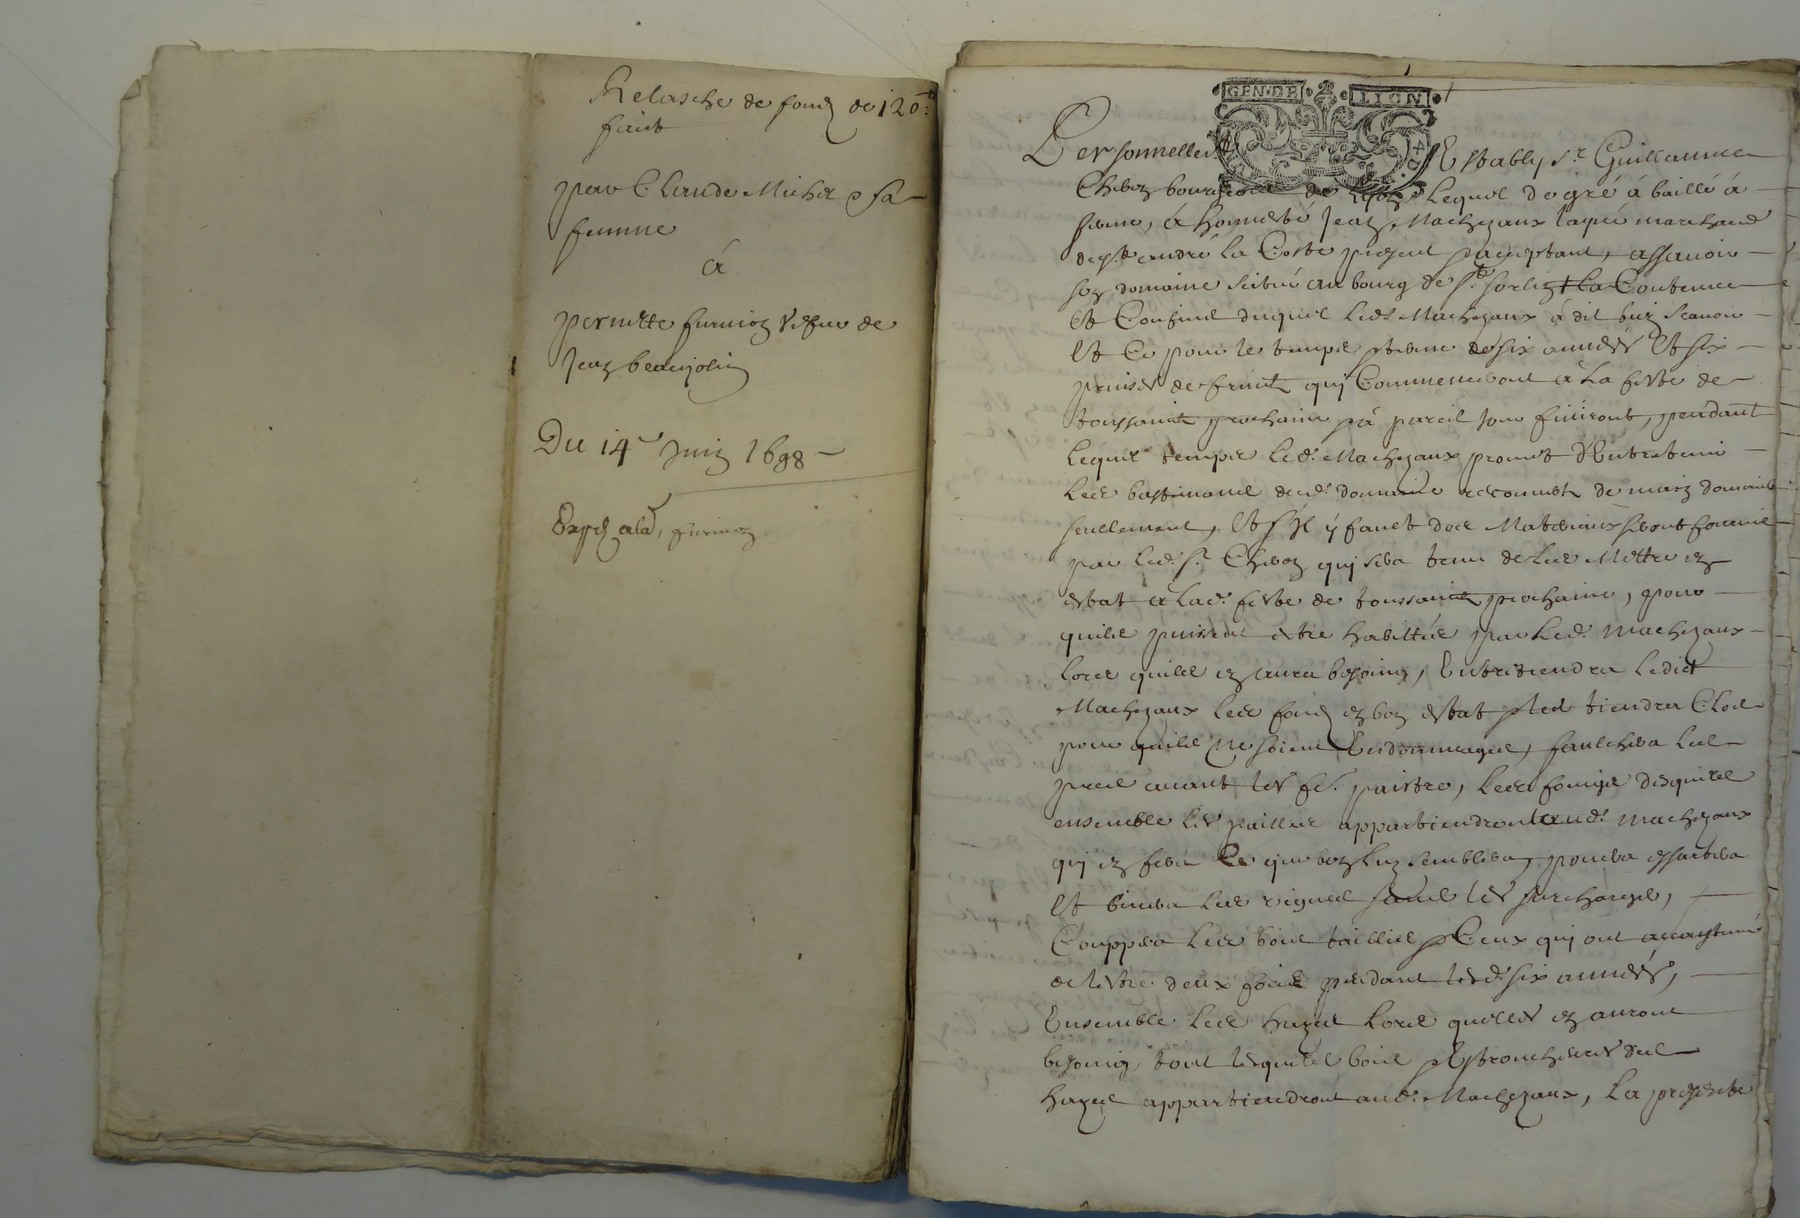 Relasche de fond de 120
faict
par Claude Michel & sa
femme
á
pernette furnion vefve de
Jean beaujolin
Du 14e Juin 1698
Exped. a lad. furnion
GEN·DE LION
Personnellemt Estably sr. Guillaume
bourgeois de Lyon Lequel de gré á baillé á
ferme, á honneste Jean Machezaux marchand
de st. andré la Coste present & acceptant, assavoir
son domaine scitué au bourg de st. sorlin & la Contenue
Et Confine duquel led. Machezaux á dit bien scavoir
Et Ce pour le temps & terme de six années Et six
prinses de fruict qui Commenceront a La feste de
toussainct prochaine & á pareil jour finiront, pendant
Lequel temps Led. Machezaux promet d'Entretenir
Les bastimans dud. domaine de main
seullement, Et s'yl y faut des Materiaux seront fournis
par Led. sr. qui sera tenu de Les Mettre en
estat a Lad. feste de toussainct prochaine, pour
quils puissent estre habittés par Led. Machezaux
Lors quils en aura besoing, Entretiendra Ledict
Machezaux Les fond en bon estat & les tiendra Clos
pour quils ne soient Endommagés, faulchera Les
pred avant les fe. paistre, Les desquels
ensemble les pailles appartiendront aud. Machezaux
qui en fera Ce que bon Luy semblera, essartera
Et binera Les vignes sans les surcharger,
Couppera Les bois taillis & Ceux qui ont accoustumé
de l'estre deux fois pendant lesd. six années,
Ensemble Les hayes Lors quelles en auront
besoing, tout lesquels bois & des
hayes appartiendront aud. Machezaux, La presente